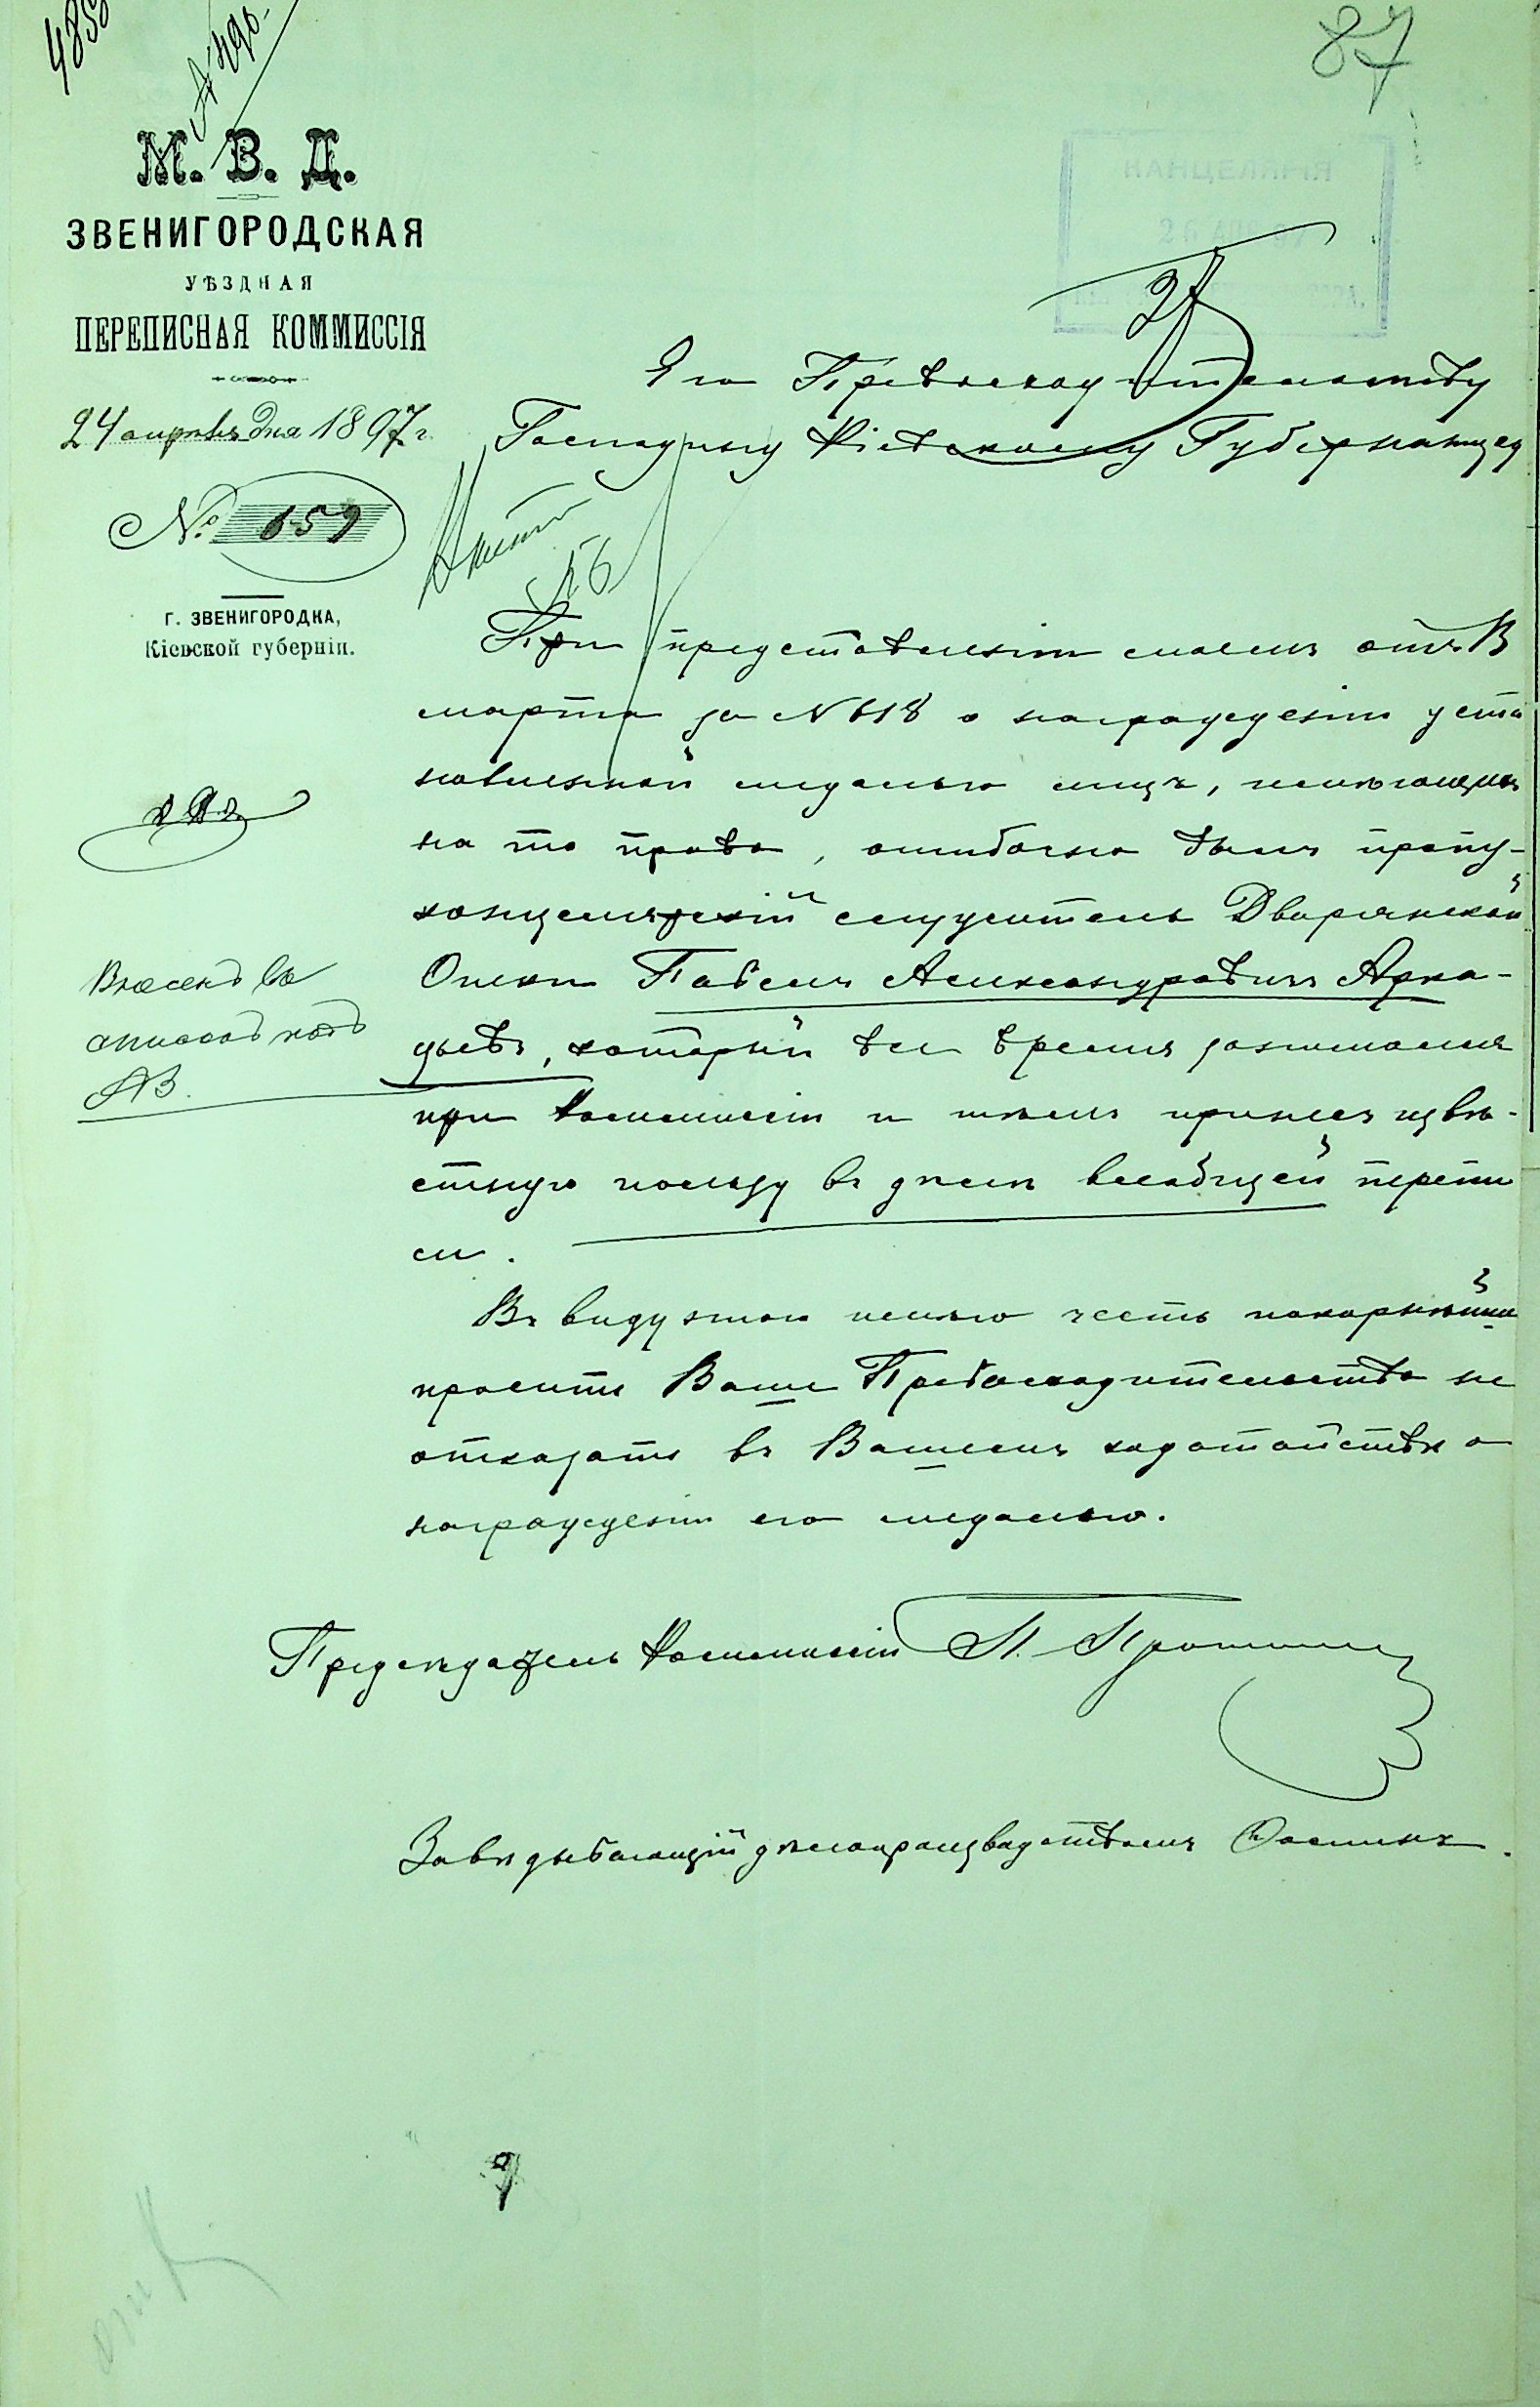 87
М. В. Д.
ЗВЕНИГОРОДСКАЯ
УѢЗДНАЯ
ПЕРЕПИСНАЯ КОММИССІЯ
24 апрѣля дня 1897 г.
№ 659
Г. ЗВЕНИГОРОДКА,
Кіевской губерніи.
КАНЦЕЛЯРІЯ
Его Превосходительству
Господину Кіевскому Губернатору
При представленіи моемъ отъ
марта за № 618 о награжденіи уста
новленной медалью лицъ, имѣющихъ
на то право, ошибочно былъ пропу-
канцелярскій служитель Дворянской
Опеки Павелъ Александровичъ Арка-
дьевъ, который все время занимался
при Коммиссіи и тѣмъ принесъ извѣ-
стную пользу въ дѣлѣ всеобщей перепи
си.
Въ виду этого имѣю честь покорнѣйше
просить Ваше Превосходительство не
отказать въ Вашемъ ходатайствѣ о
награжденіи его медалью.
Внесенъ въ
списокъ подъ
Предсѣдатель Коммиссіи П.
Завѣдывающій дѣлопроизводствомъ